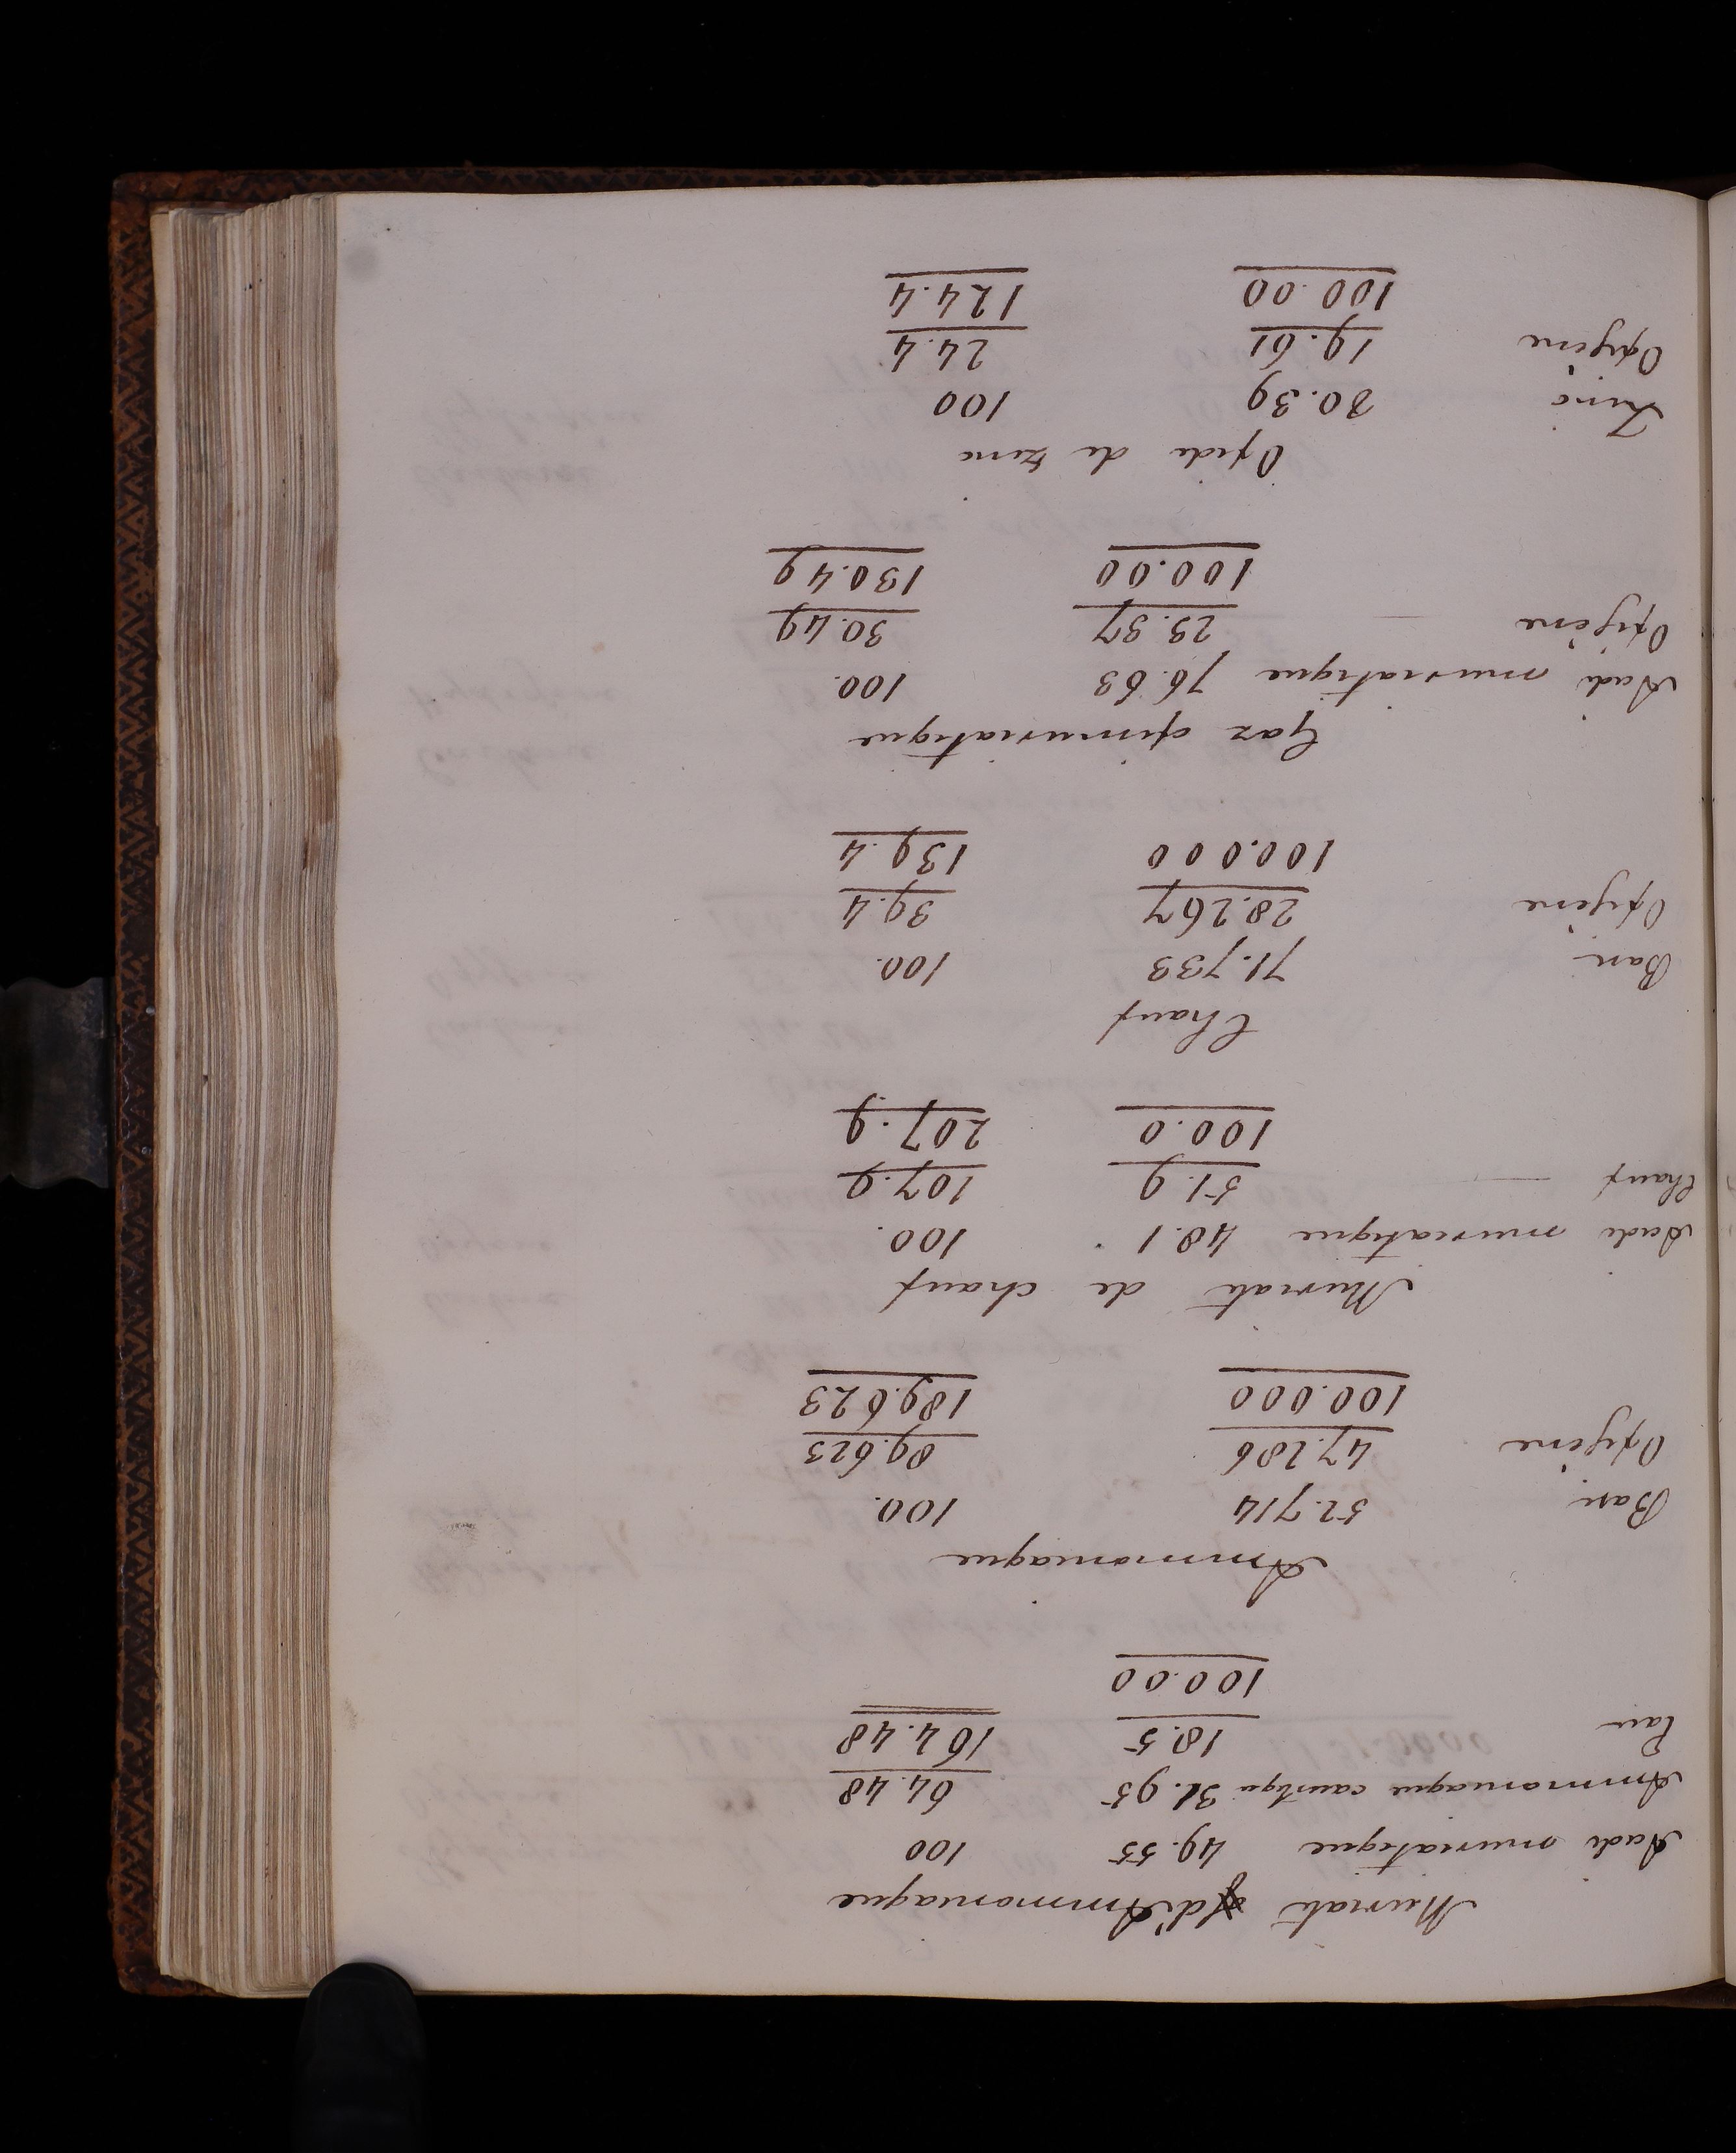 Muriate d'Ammoniaque
Acide muriatique 49.55 100
Ammoniaque caustique 31.95 64.48
Eau 18.5 164.48
100.00
Ammoniaque
Base 52.714 100.
Oxigène 47.286 89.623
100.000 189.623
Muriate de chaux
Acide muriatique 48.1 100.
Chaux 51.9 107.9
100.0 207.9
Chaux
Base 71.733 100.
Oxigène 28.267 39.4
100.000 139.4
Gaz oximuriatique
Acide muriatique 76.63 100.
Oxigène 23.37 30.49
100.00 130.49
Oxide de zinc
Zinc 80.39 100
Oxigène 19.61 24.4
100.00 124.4